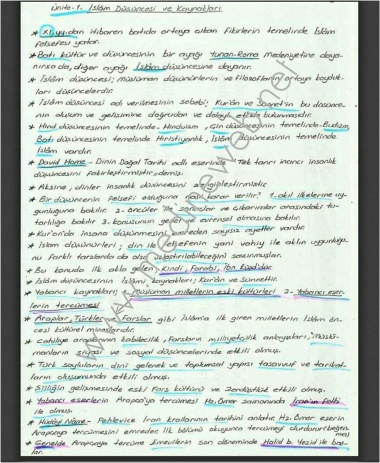 Ünite-1. İslâm Düşüncesi ve Kaynakları
* XI.yy.dan itibaren batıda ortaya çıkan fikirlerin temelinde İslâm
felsefesi yatar.
* Batı kültür ve düşüncesinin bir ayağı Yunan-Roma medeniyetine daya-
nırsa da, diğer ayağı İslâm düşüncesine dayanır.
* İslâm düşüncesi; müslüman düşünürlerin ve filozofların ortaya koyduk-
ları düşüncelerdir.
* İslâm düşüncesi adı verilmesinin sebebi; Kur'ân ve Sünnet'in bu düşünce-
nin oluşum ve gelişimine doğrudan ve dolaylı etkide bulunmasıdır.
* Hind düşüncesinin temelinde-Hinduizm, Çin düşüncesinin temelinde-Budizm,
Batı düşüncesinin temelinde Hıristiyanlık, İslâm düşüncesinin temelinde
İslâm vardır.
* David Home- Dinin Doğal Tarihi adlı eserinde Tek tanrı inancı insanlık
düşüncesini fakirleştirmiştir, demiş.
* Aksine, dinler insanlık düşüncesini zenginleştirmiştir.
* Bir düşüncenin felsefi olduğuna nasıl karar verilir? 1. akıl ilkelerine uy-
gunluğuna bakılır. 2- öncüller ile sonuçlar ve çıkarımlar arasındaki tu-
tarlılığa bakılır. 3- konusunun genel ve evrensel olmasına bakılır.
* Kur'an'da insana düşünmesini emreden sayısız ayetler vardır.
* İslam düşünürleri; din ile felsefenin yani vahiy ile aklın uygunluğu-
nu farklı tarzlarda da olsa uzlaştırılabileceğini savunmuşlar.
* Bu konuda ilk akla gelen; Kindi, Farabi, İbn Rüşd'dür.
* İslâm düşüncesinin İslâmi kaynakları; Kur'ân ve Sünnettir.
* Yabancı kaynakları; 1- müslüman milletlerin eski kültürleri 2- Yabancı eser-
lerin tercümesi
* Araplar, Türkler ve Farslar gibi İslâm'a ilk giren milletlerin İslâm ön-
cesi kültürel miraslarıdır.
* Cahiliye araplarının kabilecilik, Farsların milliyetçilik anlayışları, müslü-
manların siyasi ve sosyal düşüncelerinde etkili olmuş.
* Türk soyluların dini gelenek ve toplumsal yapısı tasavvuf ve tarikat-
ların oluşumunda etkili olmuş.
* Şiiliğin gelişmesinde eski Fars kültürü ve Zerdüştlük etkili olmuş.
* Yabancı eserlerin Arapça'ya tercümesi Hz. Ömer zamanında İran'ın Fethi
ile olmuş.
* Hüday Name- Pehlevice İran krallarının tarihini anlatır. Hz. Ömer eserin
Arapçaya tercümesini emreder. ilk bölümü okuyunca tercümeyi durdurur.
* Genelde Arapçaya tercüme Emevilerin son döneminde Halid b. Yezid ile baş-
lar.